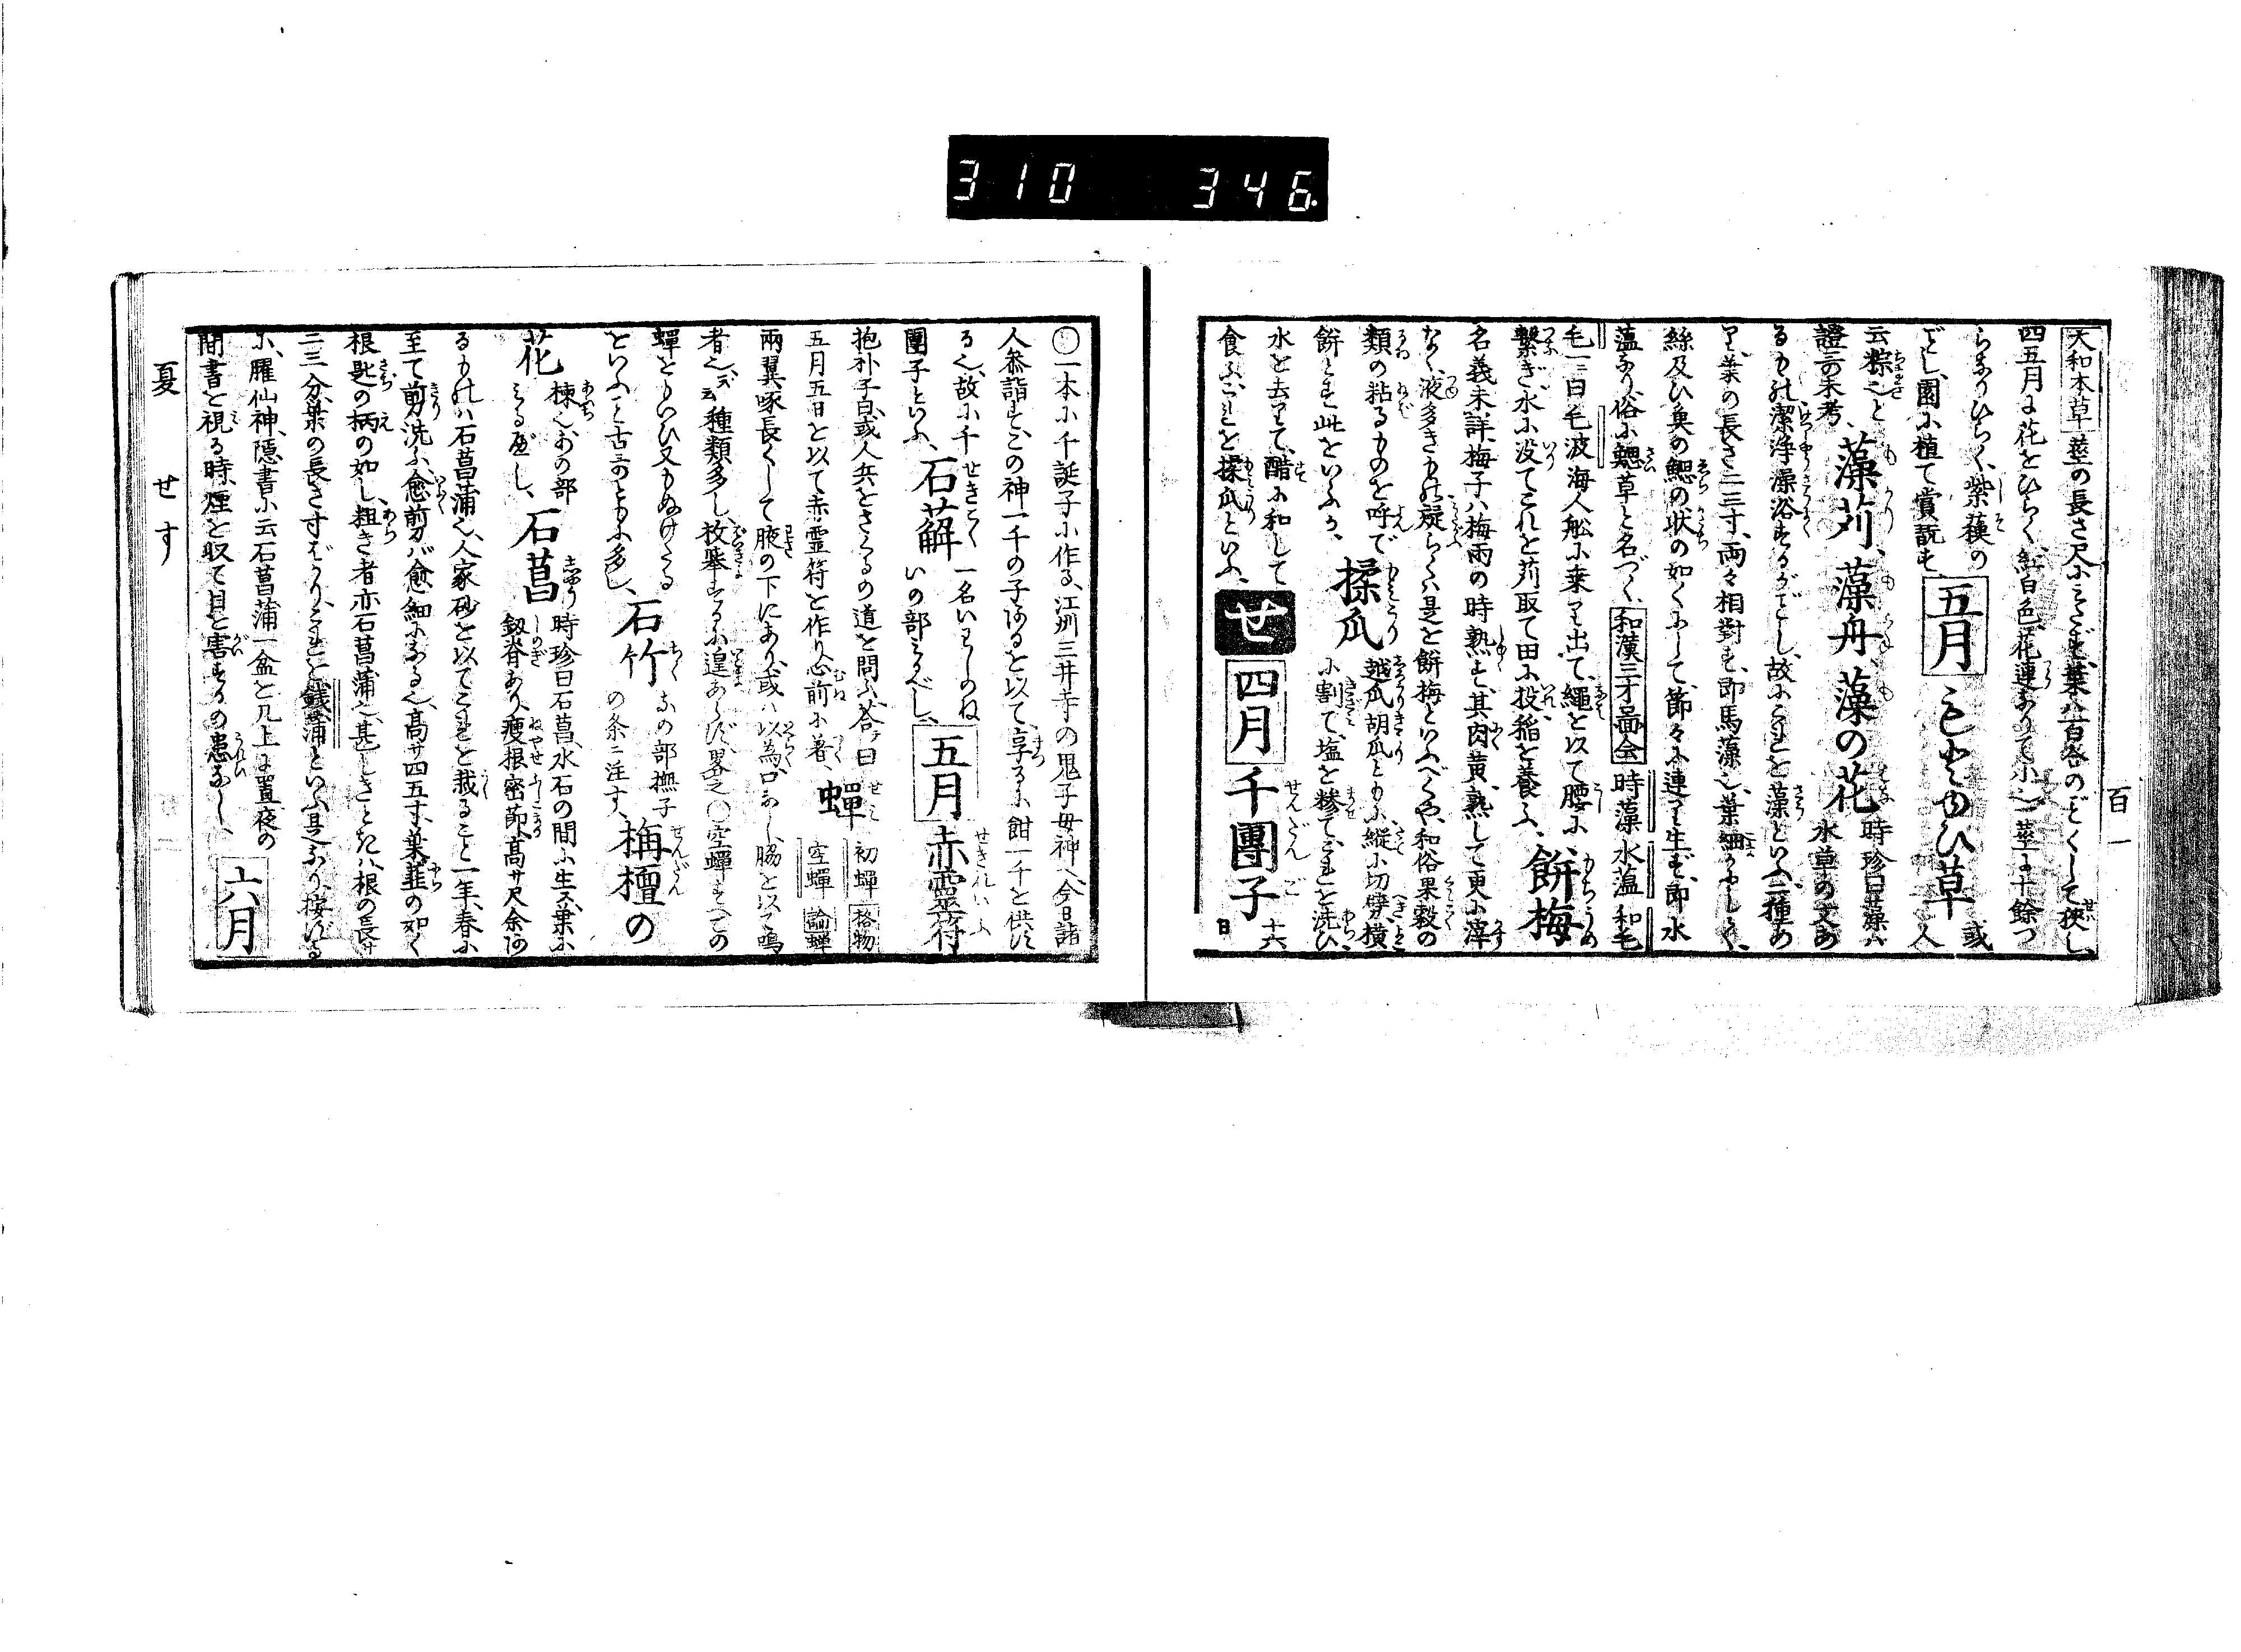 310 346
百一
大和本草 茎の長さ尺にみたず、葉は百合のごとくして狭し、
四五月に花をひらく、紅白色、花連ありて小也、一茎に十餘つ
らなりひらく、紫蘓の
ごとし、園に植て賞翫す、 五月 もとゆひ草 或人
云粽也と
證哥未考、 藻苅、藻舟、藻の花 時珍曰藻ハ水草の文あ
るもの潔浄澡浴するがごとし、故にこれを藻といふ、二種あ
り、葉の長さ二三寸、両々相對す、即馬藻也、葉細にして、
絲及ひ魚の鰓の状の如くにして、節々に連り生ず、即水
薀なり、俗に鰓草と名づく、 和漢三才圖会 時藻 水薀 和毛
毛 一曰毛波 海人舩に乗り出て、縄を以て腰に
繋ぎ、水に没てこれを苅取て田に投、稲を養ふ、 餅梅
名義未詳、梅子ハ梅雨の時熟す、其肉黄熟して更に滓
なく、液多きもの凝らくハ是を餅梅といふべくや、和俗果穀の
類の粘るものを呼で
餅とす、此をいふか、 揉瓜 越瓜胡瓜ともに縦に切劈、横
に割て、塩を糝て、これを洗ひ
水を去りて、醋に和して
食ふ、これを揉瓜といふ、 せ 四月 千團子 十六日
〇一本に千誕子に作る、江州三井寺の鬼子母神へ今日諸
人参詣す、この神一千の子あるを以て、享るに餅一千を供ず
る也、故に千
團子といふ、 石蘚 一名いわしのね
いの部みるべし、 五月 赤霊符
抱朴子曰、或人兵をさくるの道を問ふ、荅ヶ曰
五月五日を以て赤霊符を作り、心前に著、 蟬 初蟬 空蟬 格物論 蟬
兩翼啄長くして腋の下にあり、或ハ以為口なし、脇を以て鳴
者也、云云 種類多し、枚舉するに遑あらず、畧之 〇空蟬すべての
蟬をもいひ、又もぬけたる
をいふこと古哥ともに多し、 石竹 なの部撫子
の条ニ注す、 栴檀の
花 楝也、あの部
みるべし、 石菖 時珍曰石菖、水石の間に生ス、葉に
釼脊あり、瘦根密節、高サ尺余、阿
るもの石菖蒲也、人家砂を以てこれを栽ること一年、春に
至て剪洗ふ、愈剪バ愈細になる也、高サ四五寸、葉韮の如く
根匙の柄の如し、粗き者亦石菖蒲也、甚しきときハ根の長サ
二三分、葉の長さ寸ばかり、これを銭蒲といふ是なり、按ずる
に、臞仙神隱書に云石菖蒲一盆を几上に置、夜の
間書を視る時、煙を収て目を害するの患なし、 六月
夏 せ す